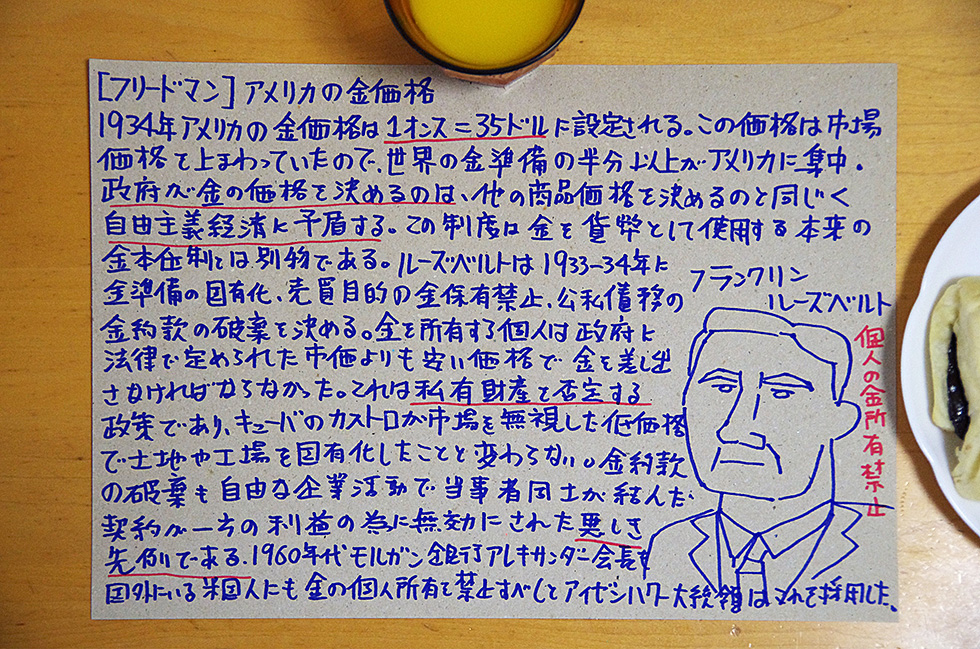 [フリードマン] アメリカの金価格
1934年アメリカの金価格は1オンス=35ドルに設定される。この価格は市場
価格を上まわっていたので、世界の金準備の半分以上がアメリカに集中.
政府が金の価格を決めるのは、他の商品価格を決めるのと同じく
自由主義経済に矛盾する。この制度は金を貨幣として使用する本来の
金本位制とは別物である。ルーズベルトは1933-34年に
金準備の国有化、売買目的の金保有禁止、公私債務の
金約款の破棄を決める。金を所有する個人は政府に
法律で定められた市価よりも安い価格で金を差し出
さなければならなかった。これは私有財産を否定する
政策であり、キューバのカストロが市場を無視した低価格
で土地や工場を国有化したことと変わらない。金約款
の破棄も自由な企業活動で当事者同士が結んだ
契約が一方の利益の為に無効にされた悪しき
先例である.1960年代モルガン銀行アレキサンダー会長も
国外にいる米国人にも金の個人所有を禁止すべしとアイゼンハワー大統領はこれを採用した、
フランクリン
ルーズベルト
個人の金所有禁止